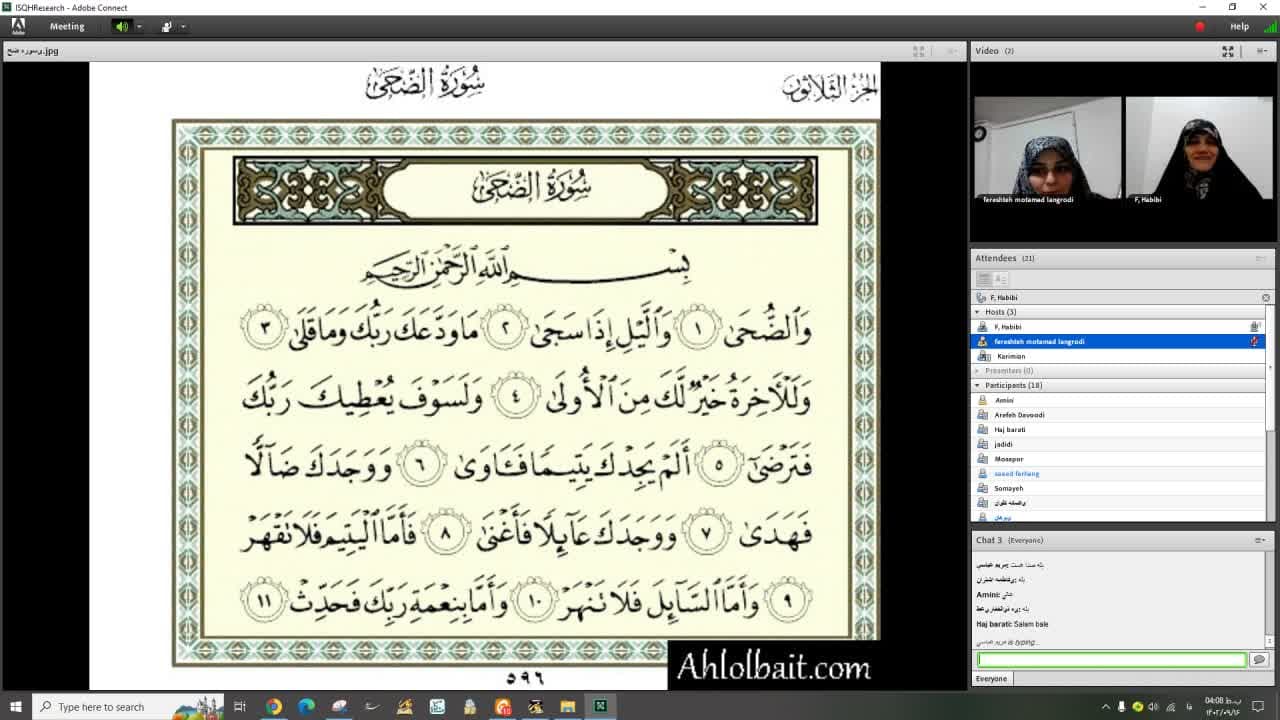 ISQHResearch - Adobe Connect
Meeting
Help
سوره ضحی.jpg
سُورَةُ الضُّحَى
الجزء الثلاثون
سُورَةُ الضُّحَى
بِسْمِ ٱللَّهِ ٱلرَّحْمَٰنِ ٱلرَّحِيمِ
وَٱلضُّحَىٰ ١ وَٱلَّيْلِ إِذَا سَجَىٰ ٢ مَا وَدَّعَكَ رَبُّكَ وَمَا قَلَىٰ ٣
وَلَلْآخِرَةُ خَيْرٌ لَّكَ مِنَ ٱلْأُولَىٰ ٤ وَلَسَوْفَ يُعْطِيكَ رَبُّكَ
فَتَرْضَىٰ ٥ أَلَمْ يَجِدْكَ يَتِيمًا فَـَٔاوَىٰ ٦ وَوَجَدَكَ ضَآلًّا
فَهَدَىٰ ٧ وَوَجَدَكَ عَآئِلًا فَأَغْنَىٰ ٨ فَأَمَّا ٱلْيَتِيمَ فَلَا تَقْهَرْ
٩ وَأَمَّا ٱلسَّآئِلَ فَلَا تَنْهَرْ ١٠ وَأَمَّا بِنِعْمَةِ رَبِّكَ فَحَدِّثْ ١١
٥٩٦
Ahlolbait.com
Video (2)
fereshteh motamad langrodi
F, Habibi
Attendees (21)
F, Habibi
Hosts (3)
F, Habibi
fereshteh motamad langrodi
Karimian
Presenters (0)
Participants (18)
Amini
Arefeh Davoodi
Haj barati
jadidi
Moaspor
saeed farhang
Somayeh
Chat 3 (Everyone)
بله صدا هست
بله
Amini: عالي
بله
Haj barati: Salam bale
مریم عباسی is typing...
Everyone
Type here to search
04:08 ب.ظ
۱۴۰۲/۰۹/۱۶